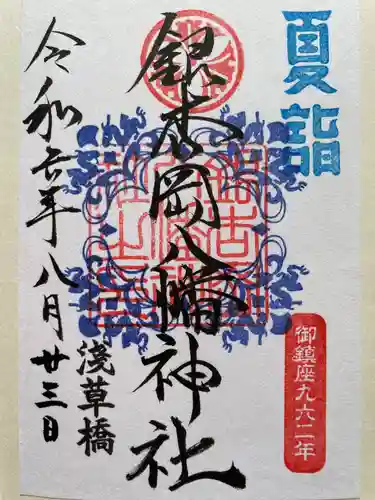 夏詣
銀杏岡八幡神社
御鎮座九六二年
令和六年八月廿三日
浅草橋